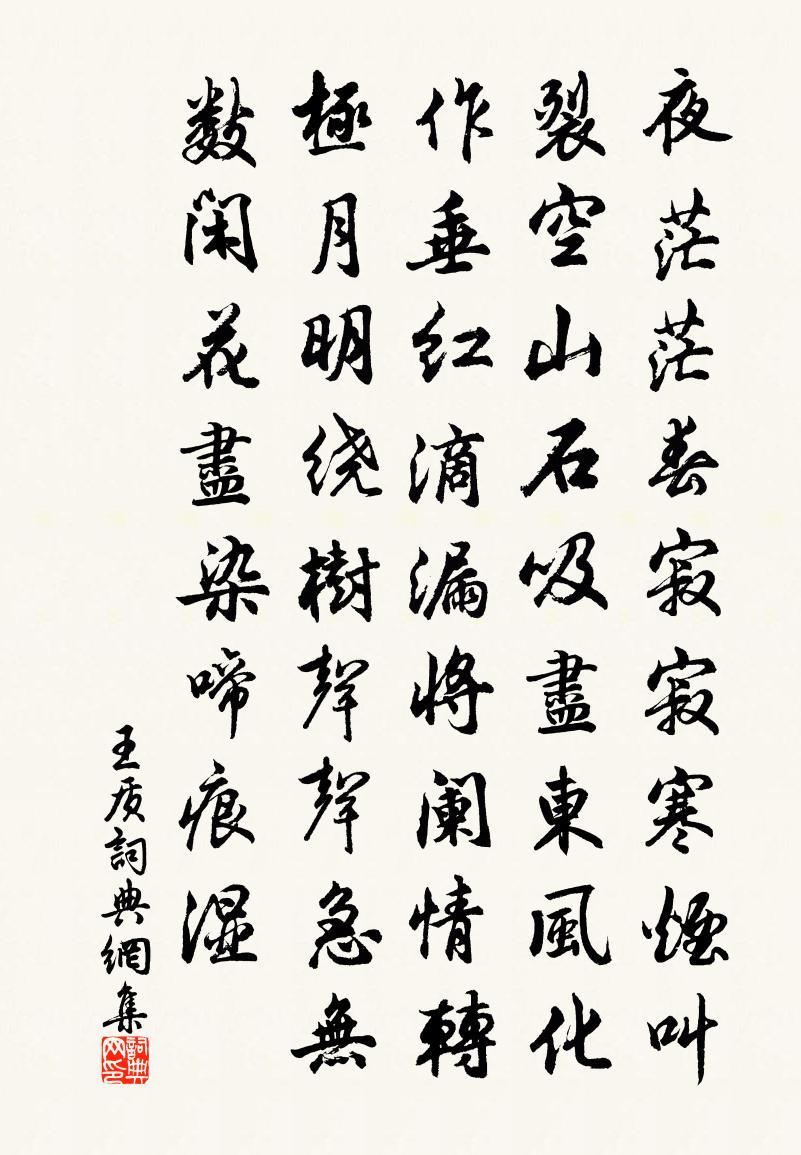 夜茫茫春寂寂寒煙叫
裂空山石吸盡東風化
作垂紅滴漏將闌情轉
極月明绕樹聲聲急無
數閑花盡染啼痕濕
王质詞典網集
詞典网印